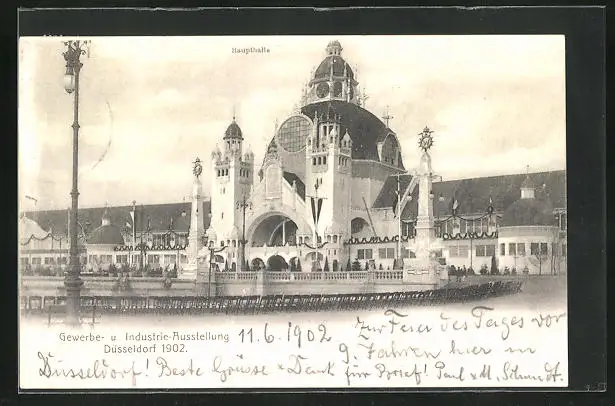 Haupthalle
Gewerbe- u Industrie-Ausstellung 11.6.1902 Zur Feier des Tages vor
Düsseldorf 1902. 9 Jahren hier in
Düsseldorf! Beste Grüsse & Dank für Brief! Paul & M. Schmidt.